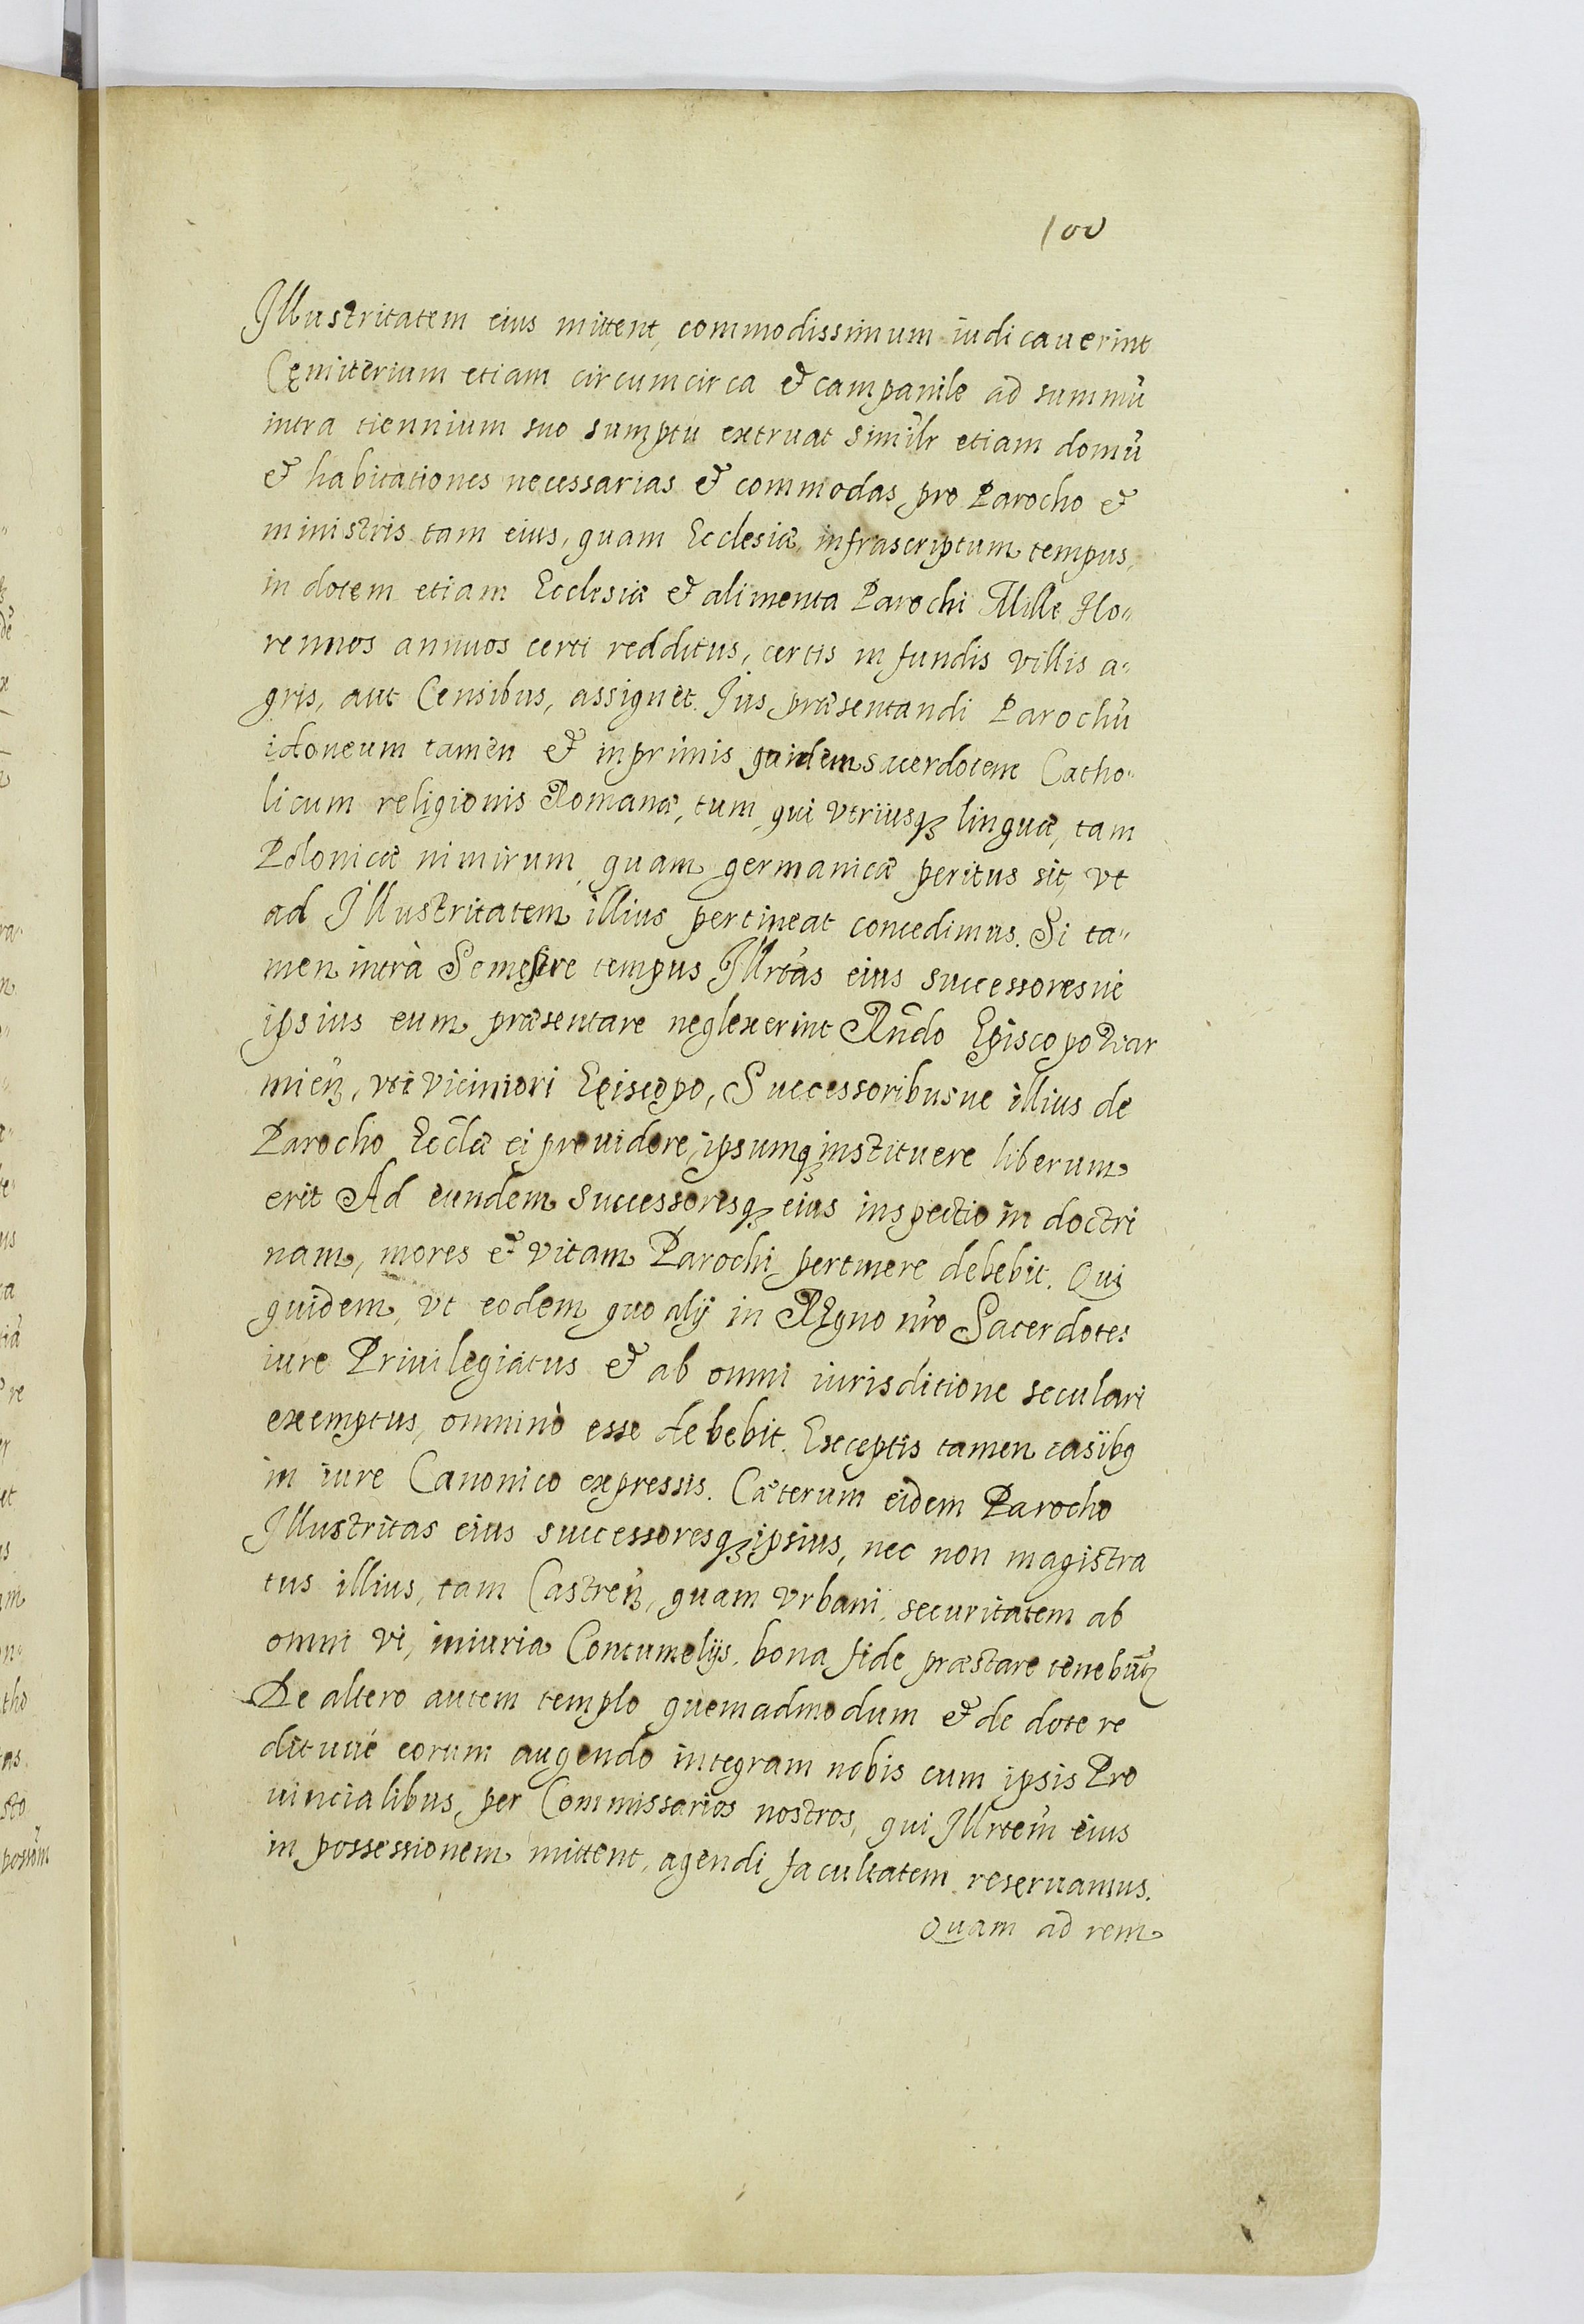 100
Illustritatem eius mittent, commodissimum iudicauerint
Cęmiterium etiam circumcirca & campanile ad summũ
intra tiennium suo sumptu extruat similr etiam domũ
& habitationes necessarias & commodas, pro Parocho &
ministris tam eius, quam Ecclesiæ, infrascriptum tempus,
in dotem etiam Ecclesiæ & alimenta Parochi Mille Flo„
rennos annuos certi redditus, certis in fundis villis a„
gris, aut Censibus, assignet. Ius præsentandi Parochũ
idoneum tamen & inprimis quidem sacerdotem Catho„
licum religionis Romanæ, tum, qui vtriusq₃ linguæ, tam
Polonicæ nimirum, quam germanicæ peritus sit, vt
ad Illustritatem illius pertineat concedimus. Si ta„
men intrà Semestre tempus Illrtas eius successoresue
ipsius eum præsentare neglexerint Rñdo Episcopo Var
mień, vti viciniori Episcopo, Successoribusue illius de
Parocho Eccłæ ei prouidere, ipsumq₃ instituere liberum
erit Ad eundem successoresq₃ eius inspectio in doctri
nam, mores & vitam Parochi pertinere debebit. Qui
quidem, vt eodem quo alij in Regno nr̃o Sacerdotes
iure Priuilegiatus & ab omni iurisditione seculari
exemptus, omninò esse debebit. Exceptis tamen casibq
in iure Canonico expressis. Cæterum eidem Parocho
Illustritas eius successoresq₃ ipsius, nec non magistra
tus illius, tam Castreń, quam Vrbani, securitatem ab
omni vi, iniuria Contumelijs, bona fide præstare tenebũt
De altero autem templo quemadmodum & de dote re
dituué eorum augendo integram nobis cum ipsis Pro
uincialibus, per Commissarios nostros, qui Illrtem̃ eius
in possessionem mittent, agendi facultatem reseruamus.
Quam ad rem